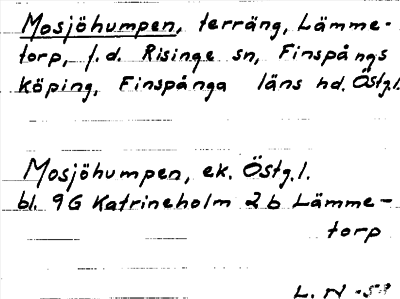 Mosjöhumpen, terräng, Lämme-
torp, f.d. Risinge sn, Finspångs
köping, Finspånga läns hd. Östg.l.
Mosjöhumpen, ek. Östg.l.
bl. 9G Katrineholm 2b Lämme-
torp
L. N -58